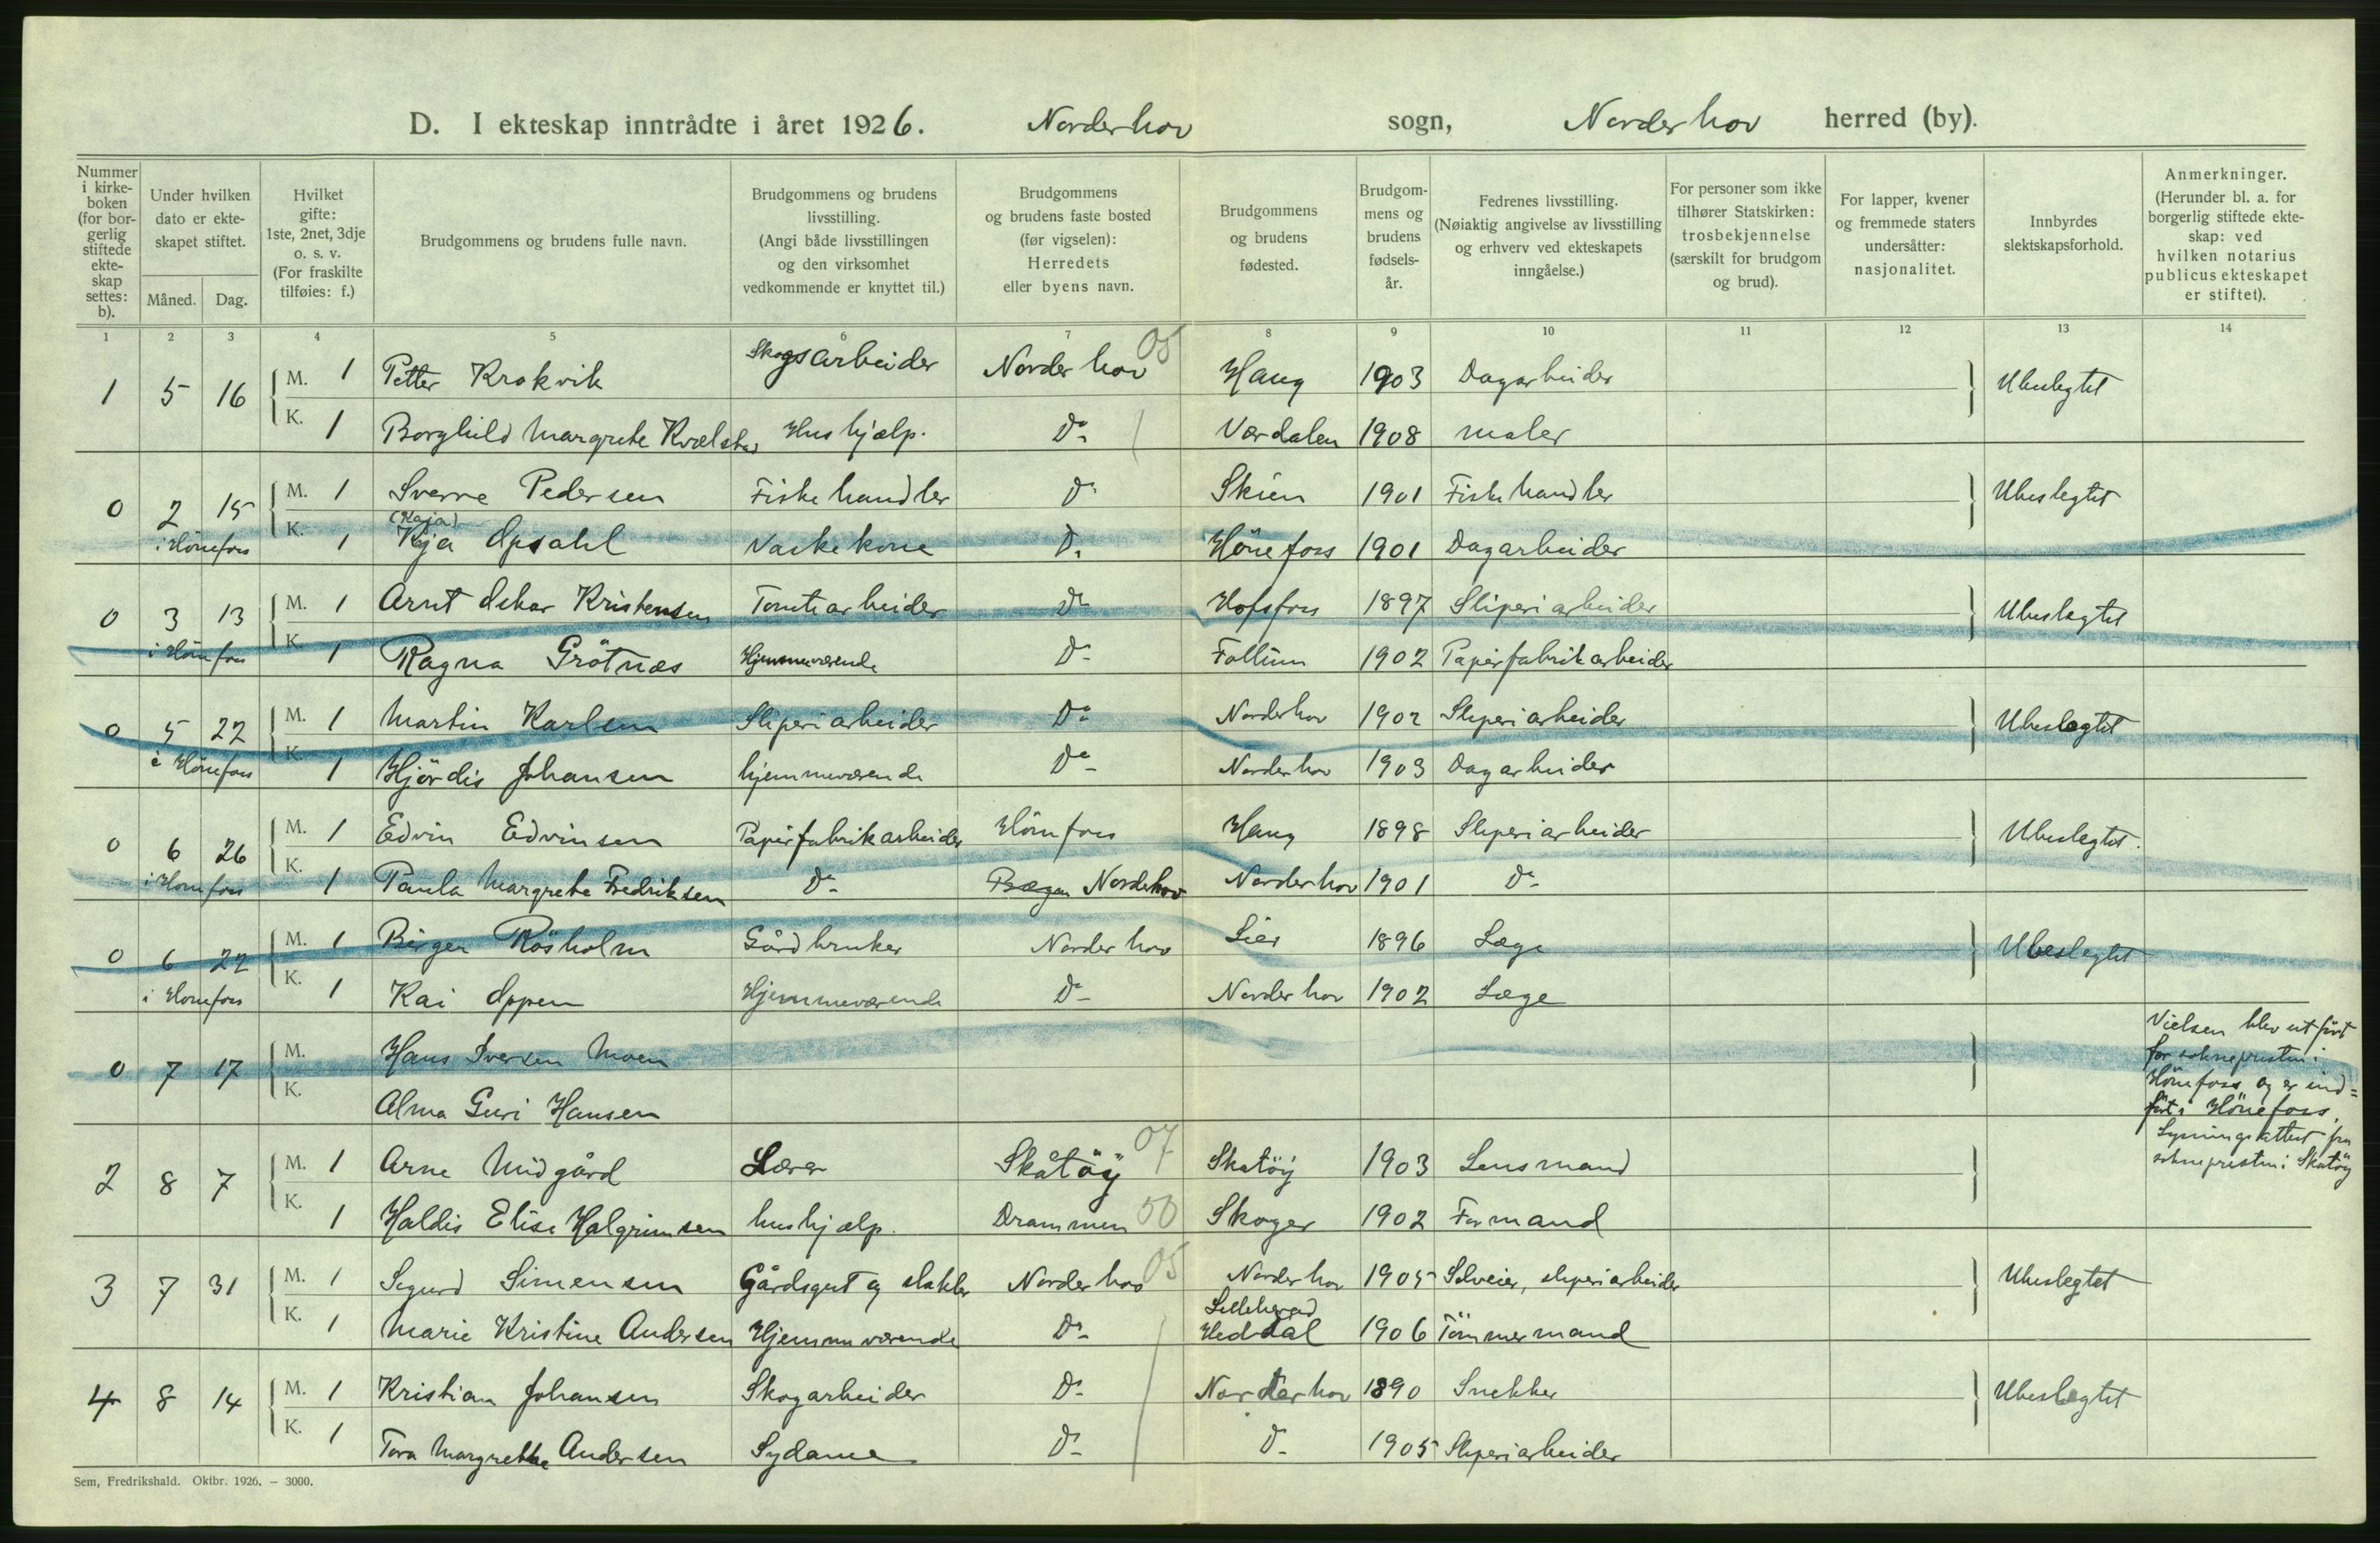 D. I ekteskap inntrådte i året 1926. Norderhov sogn, Norderhov herred (by).
Nummer i kirkeboken (for borgerlig stiftede ekteskap settes: b).
Under hvilken dato er ekteskapet stiftet.
Måned. Dag.
Hvilket gifte: 1ste, 2net, 3dje o. s. v. (For fraskilte tilføies: f.)
Brudgommens og brudens fulle navn.
Brudgommens og brudens livsstilling. (Angi både livsstillingen og den virksomhet vedkommende er knyttet til.)
Brudgommens og brudens faste bosted (før vigselen): Herredets eller byens navn.
Brudgommens og brudens fødested.
Brudgommens og brudens fødselsår.
Fedrenes livsstilling. (Nøiaktig angivelse av livsstilling og erhverv ved ekteskapets inngåelse.)
For personer som ikke tilhører Statskirken: trosbekjennelse (særskilt for brudgom og brud).
For lapper, kvener og fremmede staters undersåtter: nasjonalitet.
Innbyrdes slektskapsforhold.
Anmerkninger. (Herunder bl. a. for borgerlig stiftede ekteskap: ved hvilken notarius publicus ekteskapet er stiftet).
1 2 3 4 5 6 7 8 9 10 11 12 13 14
1 5 16 M. 1 Petter Krokvik Skogsarbeider Norderhov 05 Haug 1903 Dagarbeider Ubeslegtet
K. 1 Borghild Margrete Hushjælp. Do Værdalen 1908 maler
0 2 15 M. 1 Sverre Pedersen Fiskehandler Do Skien 1901 Fiskehandler Ubeslegtet
i Hönefoss K. 1 (Kaja) Kaja Opsahl Vaskekone Do Hönefoss 1901 Dagarbeider
0 3 13 M. 1 Arnt Oskar Kristensen Tomtearbeider Do Hofsfoss 1897 Sliperiarbeider Ubeslegtet
i Hönefoss K. 1 Ragna Grötnæs Hjemmeværende Do Follum 1902 Papirfabrikarbeider
0 5 22 M. 1 Martin Karlsen Sliperiarbeider Do Norderhov 1902 Sliperiarbeider Ubeslegtet
i Hönefoss K. 1 Hjördis Johansen hjemmeværende Do Norderhov 1903 Dagarbeider
0 6 26 M. 1 Edvin Edvinsen Papirfabrikarbeider Hönefoss Haug 1898 Sliperiarbeider Ubeslegtet.
i Hönefoss K. 1 Paula Margrete Fredriksen Do Norderhov Norderhov 1901 Do
0 6 22 M. 1 Birger Rösholm Gårdbruker Norderhov Lier 1896 Læge Ubeslegtet
i Hönefoss K. 1 Kai Oppen Hjemmeværende Do Norderhov 1902 Læge
0 7 17 M. Hans Iversen Moen Vielsen blev utfört
for sogneprsten i
K. Hönefoss og er ind=
Alma Guri Hansen fört i Hönefoss.
2 8 7 M. 1 Arne Midgård Lærer Skåtöy 07 Skatöy 1903 Lensmand Lysningsattest fra
sogneprsten i Skatöy
K. 1 Haldis Elise Halgrimsen hushjælp. Drammen 50 Skoger 1902 Formand
3 7 31 M. 1 Sigurd Simensen Gårdsgut og slakter Norderhov 05 Norderhov 1905 Selveier, sliperiarbeider Ubeslegtet
K. 1 Marie Kristine Andersen Hjemmeværende Do Lilleherred Heddal 1906 Tömmermand
4 8 14 M. 1 Kristian Johansen Skogarbeider Do Norderhov 1890 Snekker Ubeslegtet
K. 1 Tora Margrethe Andersen Sydame Do Do 1905 Sliperiarbeider
Sem, Fredrikshald. Oktbr. 1926. – 3000.